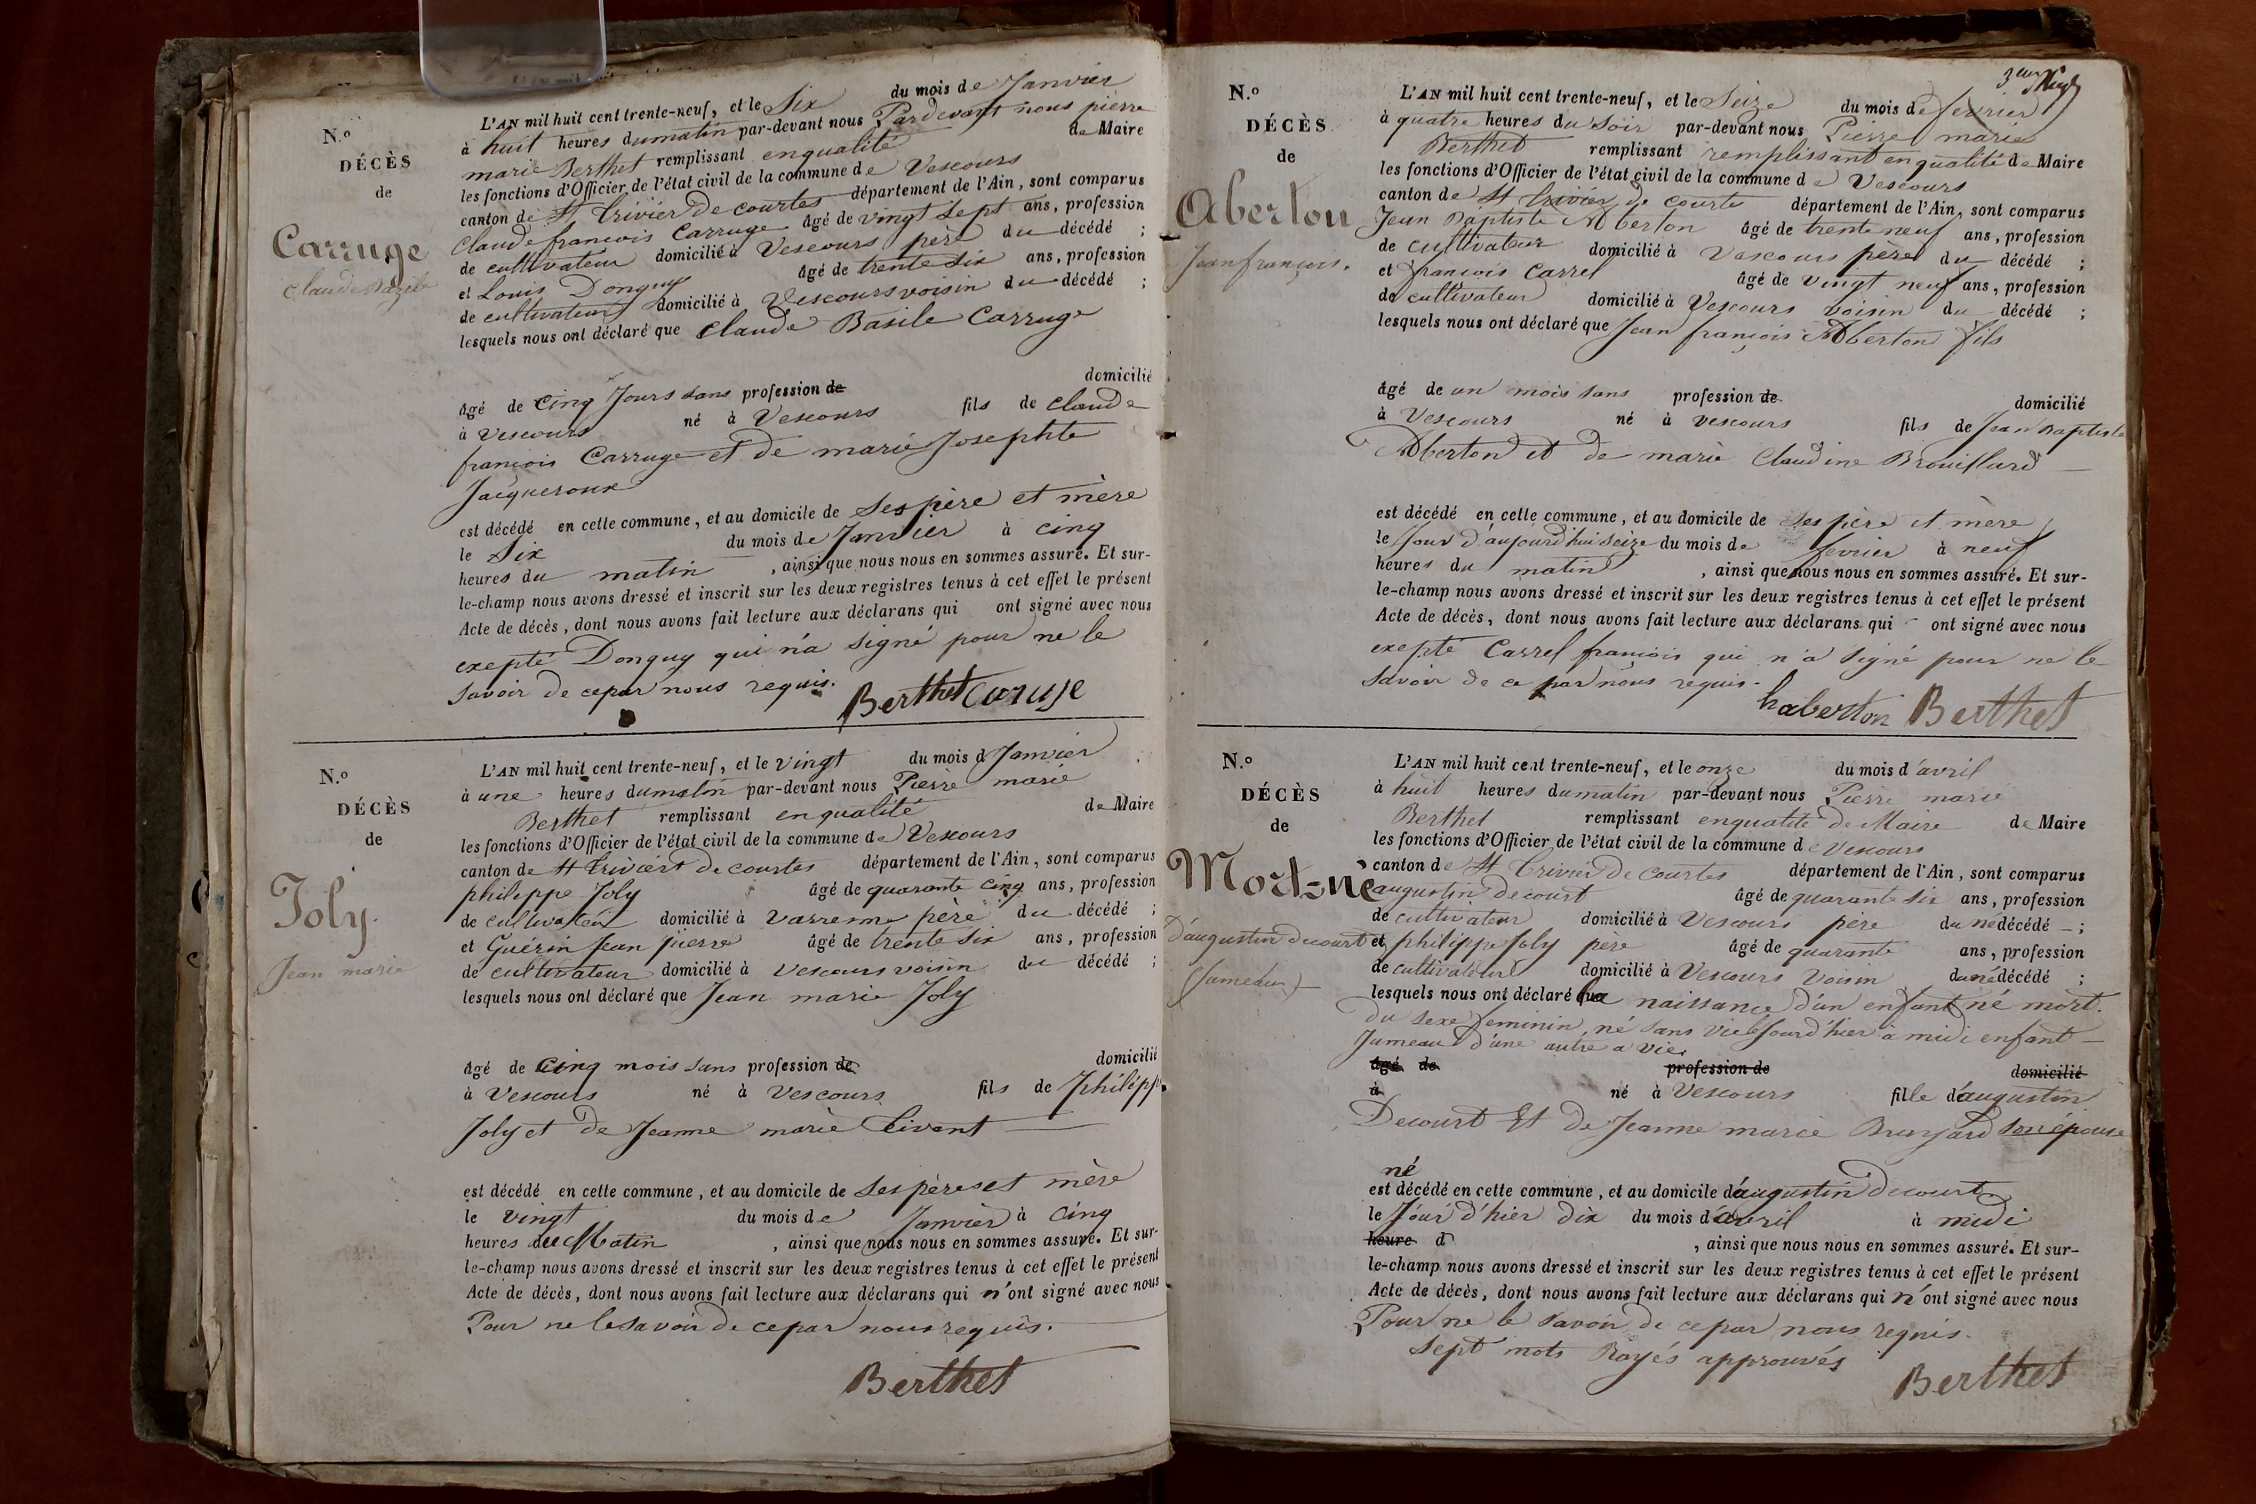 N.o
DÉCÈS
de
Carruge
Claude Bazile
L'AN mil huit cent trente-neuf, et le Six du mois de Janvier
à huit heures du matin par-devant nous Pardevant nous pierre
marie Berthet remplissant en qualité de Maire
les fonctions d'Officier de l'état civil de la commune de Vescours
canton de St Trivier de courtes département de l'Ain, sont comparus
Claude francois Carruge âgé de vingt Sept ans, profession
de cultivateur domicilié à Vescours père du décédé ;
et Louis Donguy âgé de trente Six ans, profession
de cultivateur domicilié à Vescours voisin du décédé ;
lesquels nous ont déclaré que Claude Basile Carruge
âgé de Cinq Jours sans profession de domicilié
à Vescours né à Vescours fils de Claude
francois Carruge et de marie Josephte
Jacqueroux
est décédé en cette commune, et au domicile de Ses père et mère
le Six du mois de Janvier à cinq
heures du matin , ainsi que nous nous en sommes assuré. Et sur-
le-champ nous avons dressé et inscrit sur les deux registres tenus à cet effet le présent
Acte de décès, dont nous avons fait lecture aux déclarans qui ont signé avec nous
exepté Donguy qui n'a signé pour ne le
savoir de ce par nous requis.
Berthet Caruje
N.o
DÉCÈS
de
Joly
Jean marie
L'AN mil huit cent trente-neuf, et le vingt du mois d Janvier
à une heures du matin par-devant nous Pierre marie
Berthet remplissant en qualité de Maire
les fonctions d'Officier de l'état civil de la commune de Vescours
canton de St Trivier de courtes département de l'Ain, sont comparus
philippe Joly âgé de quarante cinq ans, profession
de cultivateur domicilié à Varrenne père du décédé ;
et Guérin Jean pierre âgé de trente Six ans, profession
de cultivateur domicilié à Vescours voisin du décédé ;
lesquels nous ont déclaré que Jean marie Joly
âgé de Cinq mois sans profession de domicilié
à Vescours né à Vescours fils de philipp
Joly et de Jeanne marie Tivant
est décédé en cette commune, et au domicile de Ses pères et mère
le vingt du mois de Janvier à cinq
heures du Matin , ainsi que nous nous en sommes assuré. Et sur-
le-champ nous avons dressé et inscrit sur les deux registres tenus à cet effet le présent
Acte de décès, dont nous avons fait lecture aux déclarans qui n'ont signé avec nous
Pour ne le savoir de ce par nous requis.
Berthet
N.o
DÉCÈS
de
Aberton
Jean françois.
L'AN mil huit cent trente-neuf, et le Seize du mois de fevrier
à quatre heures du Soir par-devant nous Pierre marie
Berthet remplissant remplissant en qualité de Maire
les fonctions d'Officier de l'état civil de la commune de Vescours
canton de St Trivier de courte département de l'Ain, sont comparus
Jean Baptiste Aberton âgé de trente neuf ans, profession
de cultivateur domicilié à Vescours père du décédé ;
et francois Carrel âgé de vingt neuf ans, profession
de cultivateur domicilié à Vescours voisin du décédé ;
lesquels nous ont déclaré que Jean françois Aberton fils
âgé de un mois sans profession de domicilié
à Vescours né à Vescours fils de Jean Baptiste
Aberton et de marie Claudine Brouillard
est décédé en cette commune, et au domicile de Ses père et mère
le Jour d'aujourd'hui seize du mois de fevrier à neuf
heures du matin , ainsi que nous nous en sommes assuré. Et sur-
le-champ nous avons dressé et inscrit sur les deux registres tenus à cet effet le présent
Acte de décès, dont nous avons fait lecture aux déclarans qui ont signé avec nous
exepté Carrel francois qui n'a signé pour ne le
savoir de ce par nous requis.
haberton Berthet
N.o
DÉCÈS
de
Mort-né
D'augustin Decourt
(Jumeau)
L'AN mil huit cent trente-neuf, et le onze du mois d'avril
à huit heures du matin par-devant nous Pierre marie
Berthet remplissant en qualité de Maire de Maire
les fonctions d'Officier de l'état civil de la commune de Vescours
canton de St Trivier de Courtes département de l'Ain, sont comparus
augustin decourt âgé de quarante six ans, profession
de cultivateur domicilié à Vescours père du né décédé ;
et philippe Joly père âgé de quarante ans, profession
de cultivateur domicilié à Vescours Voisin du né décédé ;
lesquels nous ont déclaré la naissance d'un enfant né mort.
du sexe feminin, né sans vie le Jourd'hier à midi enfant
Jumeau d'une autre a vie.
âgé de profession de domicilié
à né à Vescours fille d'augustin
Decourt Et de Jeanne marie Brunjard son épouse
né
est décédé en cette commune, et au domicile d'augustin decourt
le Jour d'hier dix du mois d'avril à midi
heure d , ainsi que nous nous en sommes assuré. Et sur-
le-champ nous avons dressé et inscrit sur les deux registres tenus à cet effet le présent
Acte de décès, dont nous avons fait lecture aux déclarans qui n'ont signé avec nous
Pour ne le savoir de ce par nous requis.
Sept mots Rayés approuvés
Berthet